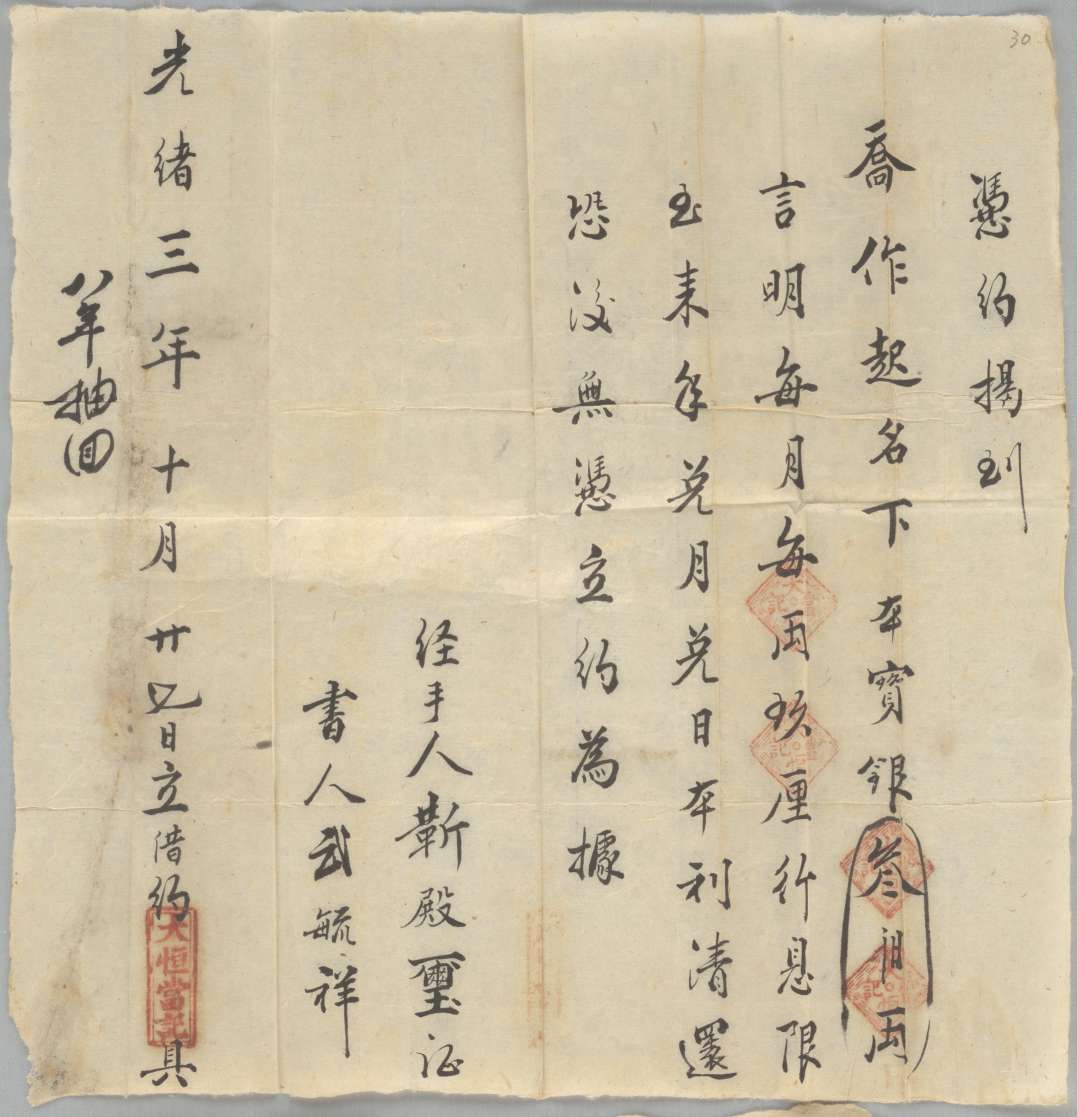 30
憑約揭到
喬作起名下本寳銀叁佰両
言明每月每両玖厘行息限
至来年兑月兑日本利清還
恐後無憑立約為據
経手人靳殿璽证
書人武毓祥
光緒三年十月廿七日立借約大恒當記具
八年抽回